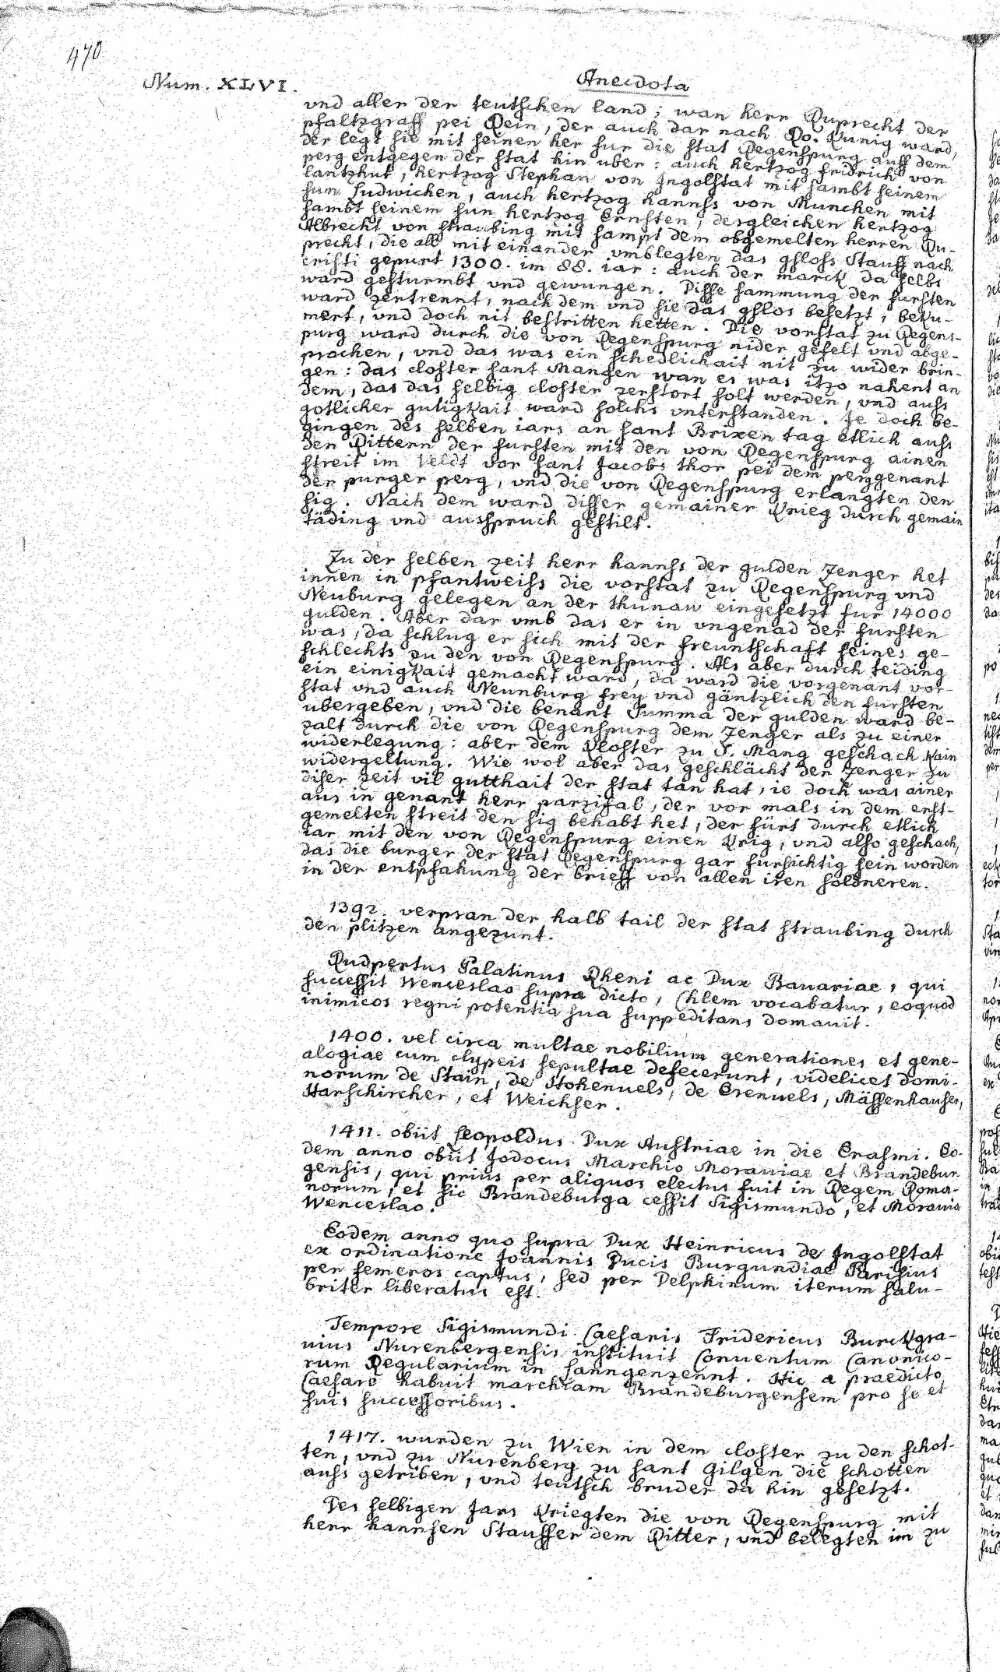 470
Num. XLVI.
Anecdota
vnd aller der teutschen land; wan herr Ruprecht der
pfaltzgraff pei Rein, der auch dar nach Ro. Kunig ward,
der legt sie mit seinen her fur die stat Regenspurg auff dem
perg entgegen der stat hin uber: auch hertzog fridrich von
lantzhut, hertzog Stephan von Ingolstat mit sambt seinem
sun Ludwichen, auch hertzog hannss von Munchen mit
sambt seinem sun hertzog Ernsten, dergleichen hertzog
Albrecht von straubing mit sampt dem obgemelten herren Ru-
precht, die all mit einander vmblegten das gschloss Stauff nach
cristi gepurt 1300. im 88. iar: auch der marck da selbs
ward gesturmbt vnd gewungen. Disse sammung der fursten
ward zertrennt, nach dem vnd sie das gslos besetzt, beku-
mert, vnd doch nit bestritten hetten. Die vorstat zu Regens-
purg ward durch die von Regenspurg nider gefelt vnd abge-
prochen, vnd das was ein schedlichait nit zu wider brin-
gen: das closter sant Mangen wan es was itzo nahent an
dem, das das selbig closter zerstort solt werden, vnd auss
gotlicher gutigkait ward solchs vnterstanden. Je doch be-
gingen des selben iars an sant Brixen tag etlich auss
den Rittern der fursten mit den von Regenspurg ainen
streit im Veldt vor sant Jacobs thor pei dem perg genant
der purger perg, vnd die von Regenspurg erlangten den
sig. Nach dem ward disser gemainer Krieg durch gemain
täding vnd ausspruch gestilt.
Zu der selben zeit herr hannss der gulden Zenger het
innen in pfantweiss die vorstat zu Regenspurg vnd
Neuburg gelegen an der thunaw eingesetzt fur 14000
gulden. Aber dar vmb das er in vngenad der fursten
was, da schlug er sich mit der freuntschaft seines ge-
schlechts zu den von Regenspurg. Als aber durch teiding
ein einigkait gemacht ward, da ward die vorgenant vor-
stat vnd auch Neunburg frey vnd gäntzlich den fursten
ubergeben, vnd die benant Summa der gulden ward be-
zalt durch die von Regenspurg dem Zenger als zu einer
widerlegung: aber dem Kloster zu S. Mang geschach kain
widergeltung. Wie wol aber das geschlächt der Zenger zu
diser zeit vil gutthait der stat tan hat, ie doch was ainer
aus in genant herr parzifal, der vor mals in dem erst-
gemelten streit den sig behabt het, der fürt durch etlich
iar mit den von Regenspurg einen Krig, vnd also geschach,
das die burger der stat Regenspurg gar fursichtig sein worden
in der entpfahung der brieff von allen iren soldneren.
1392. verpran der halb tail der stat straubing durch
den plitzen angezunt.
Rudpertus Palatinus Rheni ac Dux Bauariae, qui
successit Wenceslao supra dicto, Chlem vocabatur, eoquod
inimicos regni potentia sua suppeditans domauit.
1400. vel circa multae nobilium generationes et gene-
alogiae cum clypeis sepultae defecerunt, videlicet domi-
norum de Stain, de Stokenuels, de Erenuels, Mässenhauser,
Harschircher, et Weichser.
1411. obiit Leopoldus Dux Austriae in die Erasmi. Eo-
dem anno obiit Jodocus Marchio Morauiae et Brandebur-
gensis, qui prius per aliquos electus fuit in Regem Roma-
norum, et sic Brandeburga cessit Sigismundo, et Morauia
Wenceslao.
Eodem anno quo supra Dux Heinricus de Ingolstat
ex ordinatione Joannis Ducis Burgundiae Parisius
per semeros captus, sed per Delphinum iterum salu-
briter liberatus est.
Tempore Sigismundi Caesaris Fridericus Burckgra-
uius Nurenbergensis instituit Conuentum Canonico-
rum Regularium in Lanngenzennt. Hic a praedicto
Caesare habuit marchiam Brandeburgensem pro se et
suis successoribus.
1417. wurden zu Wien in dem closter zu den schot-
ten, vnd zu Nurenberg zu sant Gilgen die schotten
auss getriben, vnd teutsch bruder da hin gesetzt.
Des selbigen Jars Kriegten die von Regenspurg mit
herr hannsen Stauffer dem Ritter, vnd belegten im zu